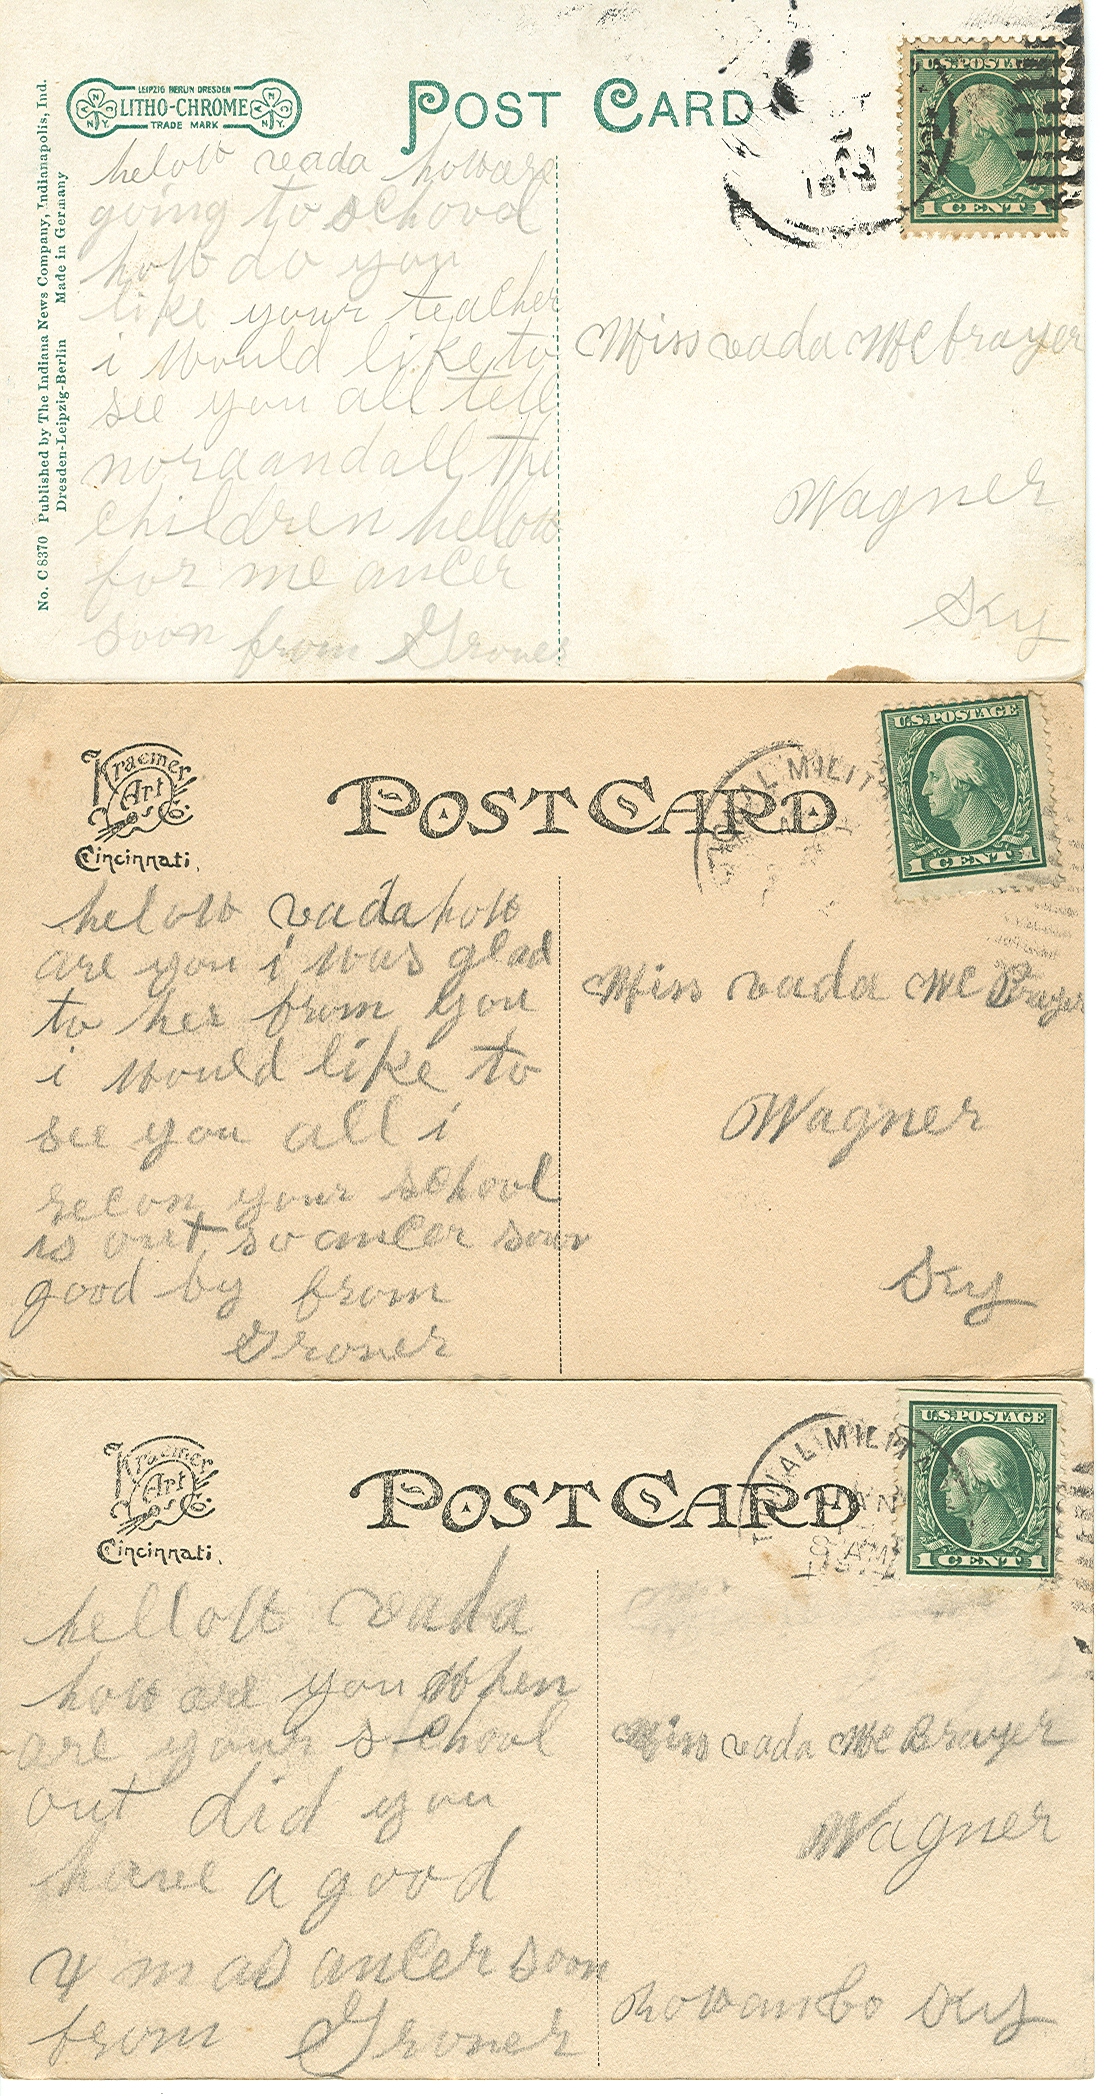 LEIPZIG BERLIN DRESDEN
LITHO-CHROME
TRADE MARK
N
N.Y.
N
N.Y.
POST CARD
U.S. POSTAGE
1 CENT 1
No. C 8370 Published by The Indiana News Company, Indianapolis, Ind.
Dresden-Leipzig-Berlin Made in Germany
helow vada
going to school
how do you
like your teacher
i would like to
see you all tell
nora and all the
children hellow
for me ancer
soon from Grover
Miss vada McBrayer
Wagner
Ky
Kraemer
Art
Co.
Cincinnati.
POST CARD
U.S. POSTAGE
1 CENT 1
helow vada how
are you i was glad
to her from you
i would like to
see you all i
recon your school
is out so ancer soon
good by from
Grover
Miss vada McBrayer
Wagner
Ky
Kraemer
Art
Co.
Cincinnati.
POST CARD
U.S. POSTAGE
1 CENT 1
JAN
8 AM
hellow vada
how are you when
are your school
out did you
have a good
x mas ancer soon
from Grover
Miss vada McBrayer
Wagner
Rowan Co Ky